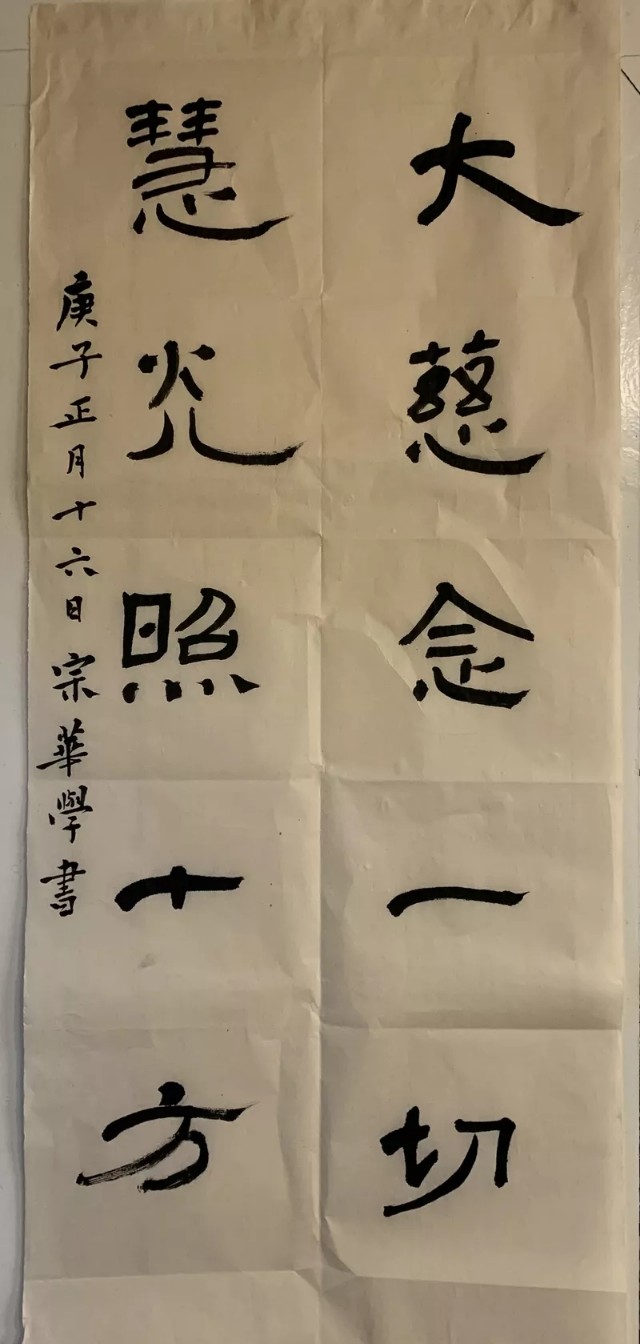 大慈念一切
慧光照十方
庚子正月十六日宗華學書